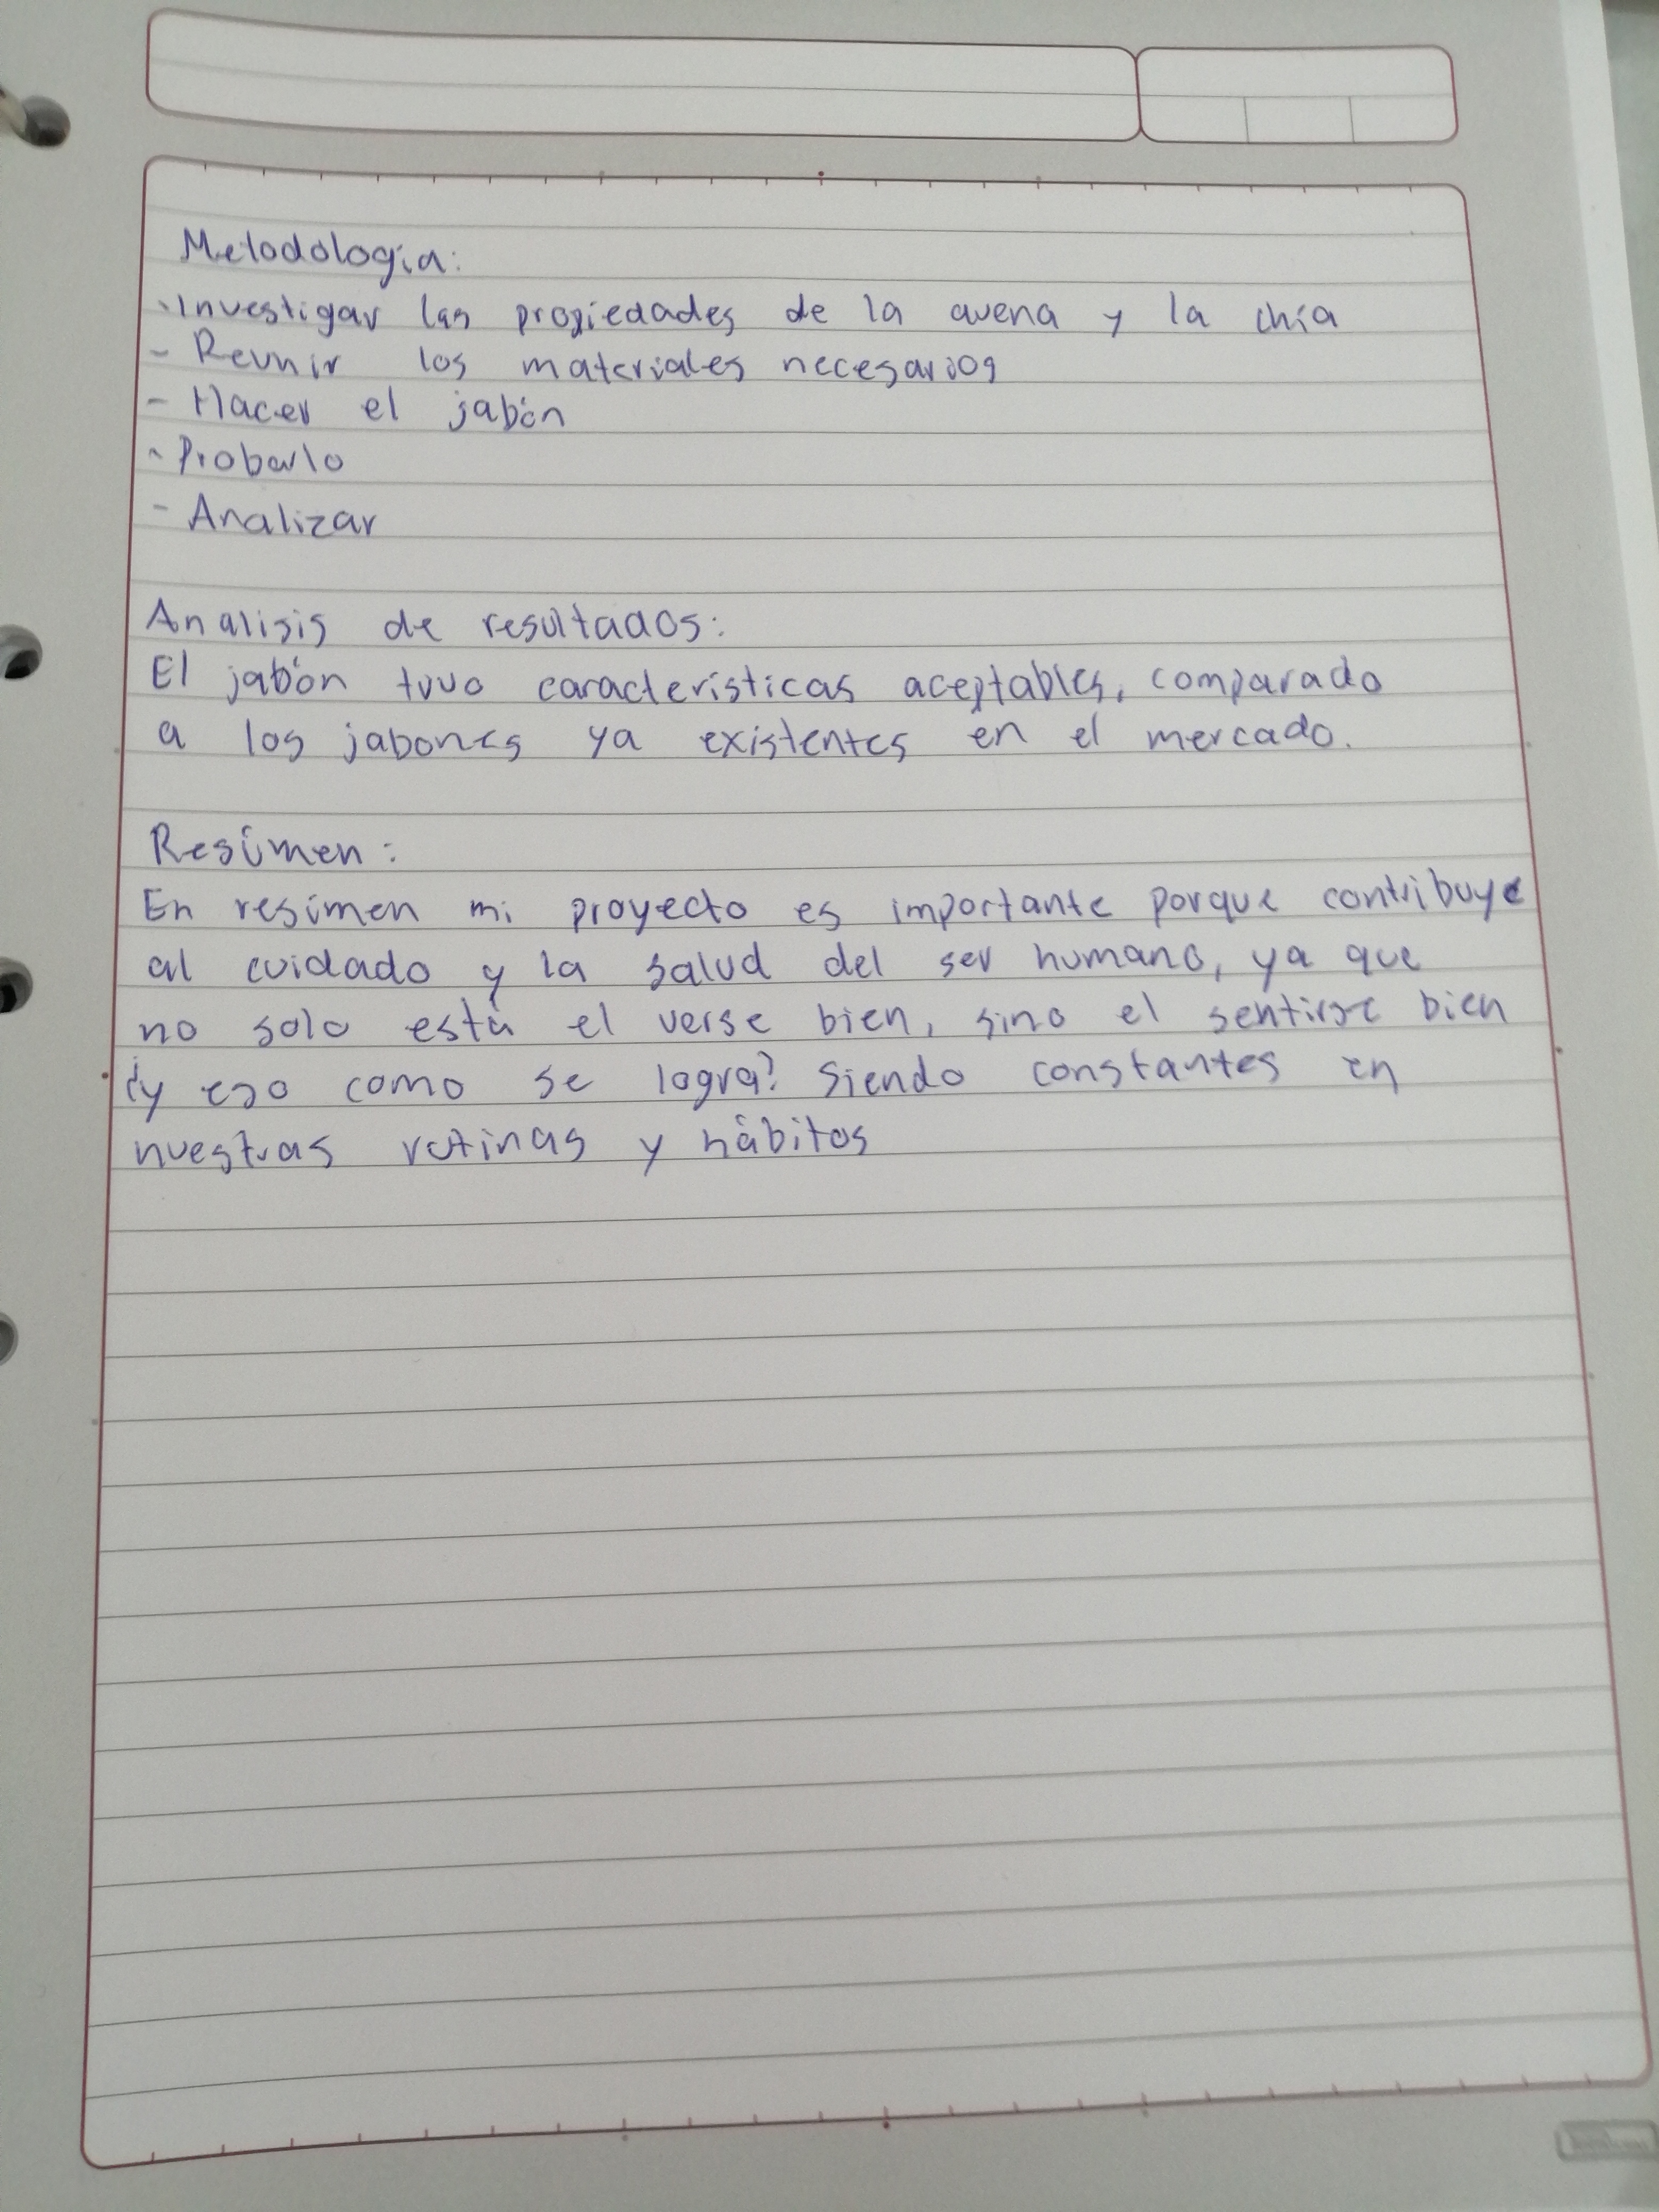 Metodología:
- Investigar las propiedades de la avena y la chía
- Reunir los materiales necesarios
- Hacer el jabón
- Probarlo
- Analizar
Analisis de resultados:
El jabón tuvo características aceptables, comparado
a los jabones ya existentes en el mercado.
Resúmen:
En resúmen mi proyecto es importante porque contribuye
al cuidado y la salud del ser humano, ya que
no solo está el verse bien, sino el sentirse bien
¿y eso como se logra? Siendo constantes en
nuestras rutinas y hábitos